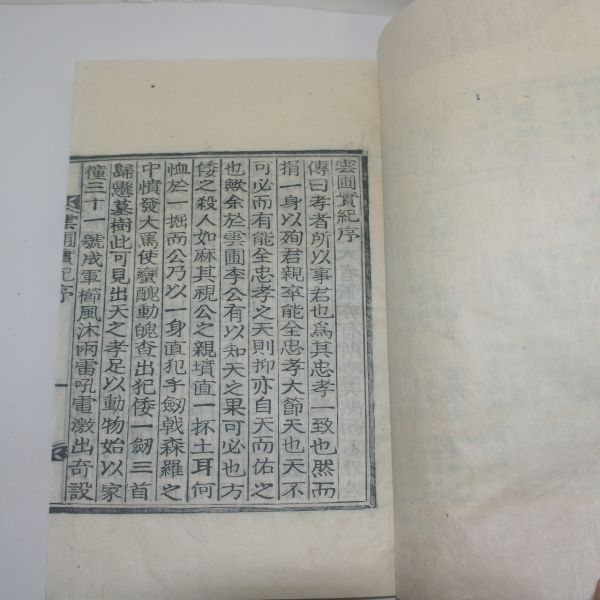 雲圃實紀序
傳曰孝者所以事君也爲其忠孝一致也然而
捐一身以殉君親卒能全忠孝大節天也天不
可必而有能全忠孝之天則抑亦自天而佑之
也歟余於雲圃李公有以知天之果可必也方
倭之殺人如麻其視公之親墳直一抔土耳何
恤於一掘而公乃以一身直犯手劒戟森羅之
中憤發大罵使蠻醜動魄查出犯倭一劒三首
歸懸墓樹此可見出天之孝足以動物始以家
僮三十一號成軍櫛風沐雨雷吼電激出奇設
雲圃實紀序
一